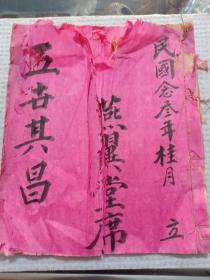 民國念叁年桂月 立
燕翼堂席
五世其昌